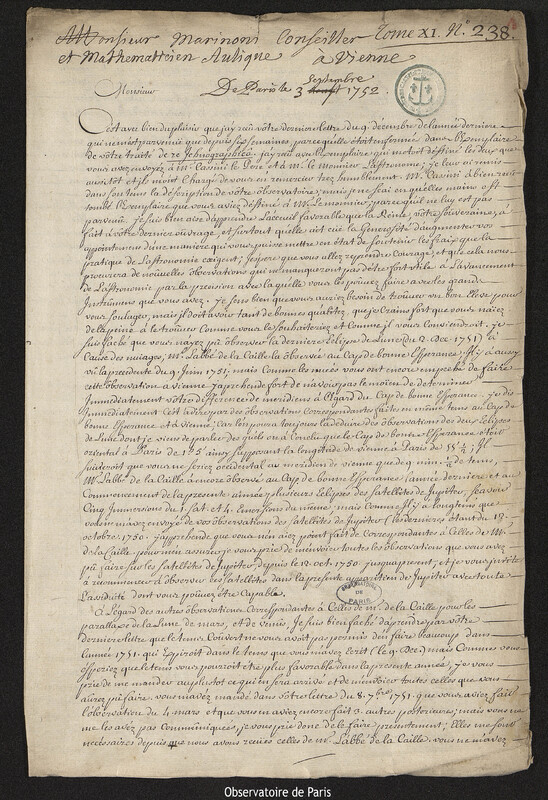 Monsieur Marinoni Conseiller Tome XI. N.º 238.
et Mathematicien Aulique à Vienne
Septembre
Monsieur De Paris le 3 Aoust 1752.
C'est avec bien du plaisir que j'ay reçû votre derniere lettre du 9. décembre de l'année derniere
qui ne m'est parvenüe que depuis six semaines, parce qu'elle étoit enfermée dans l'Exemplaire
de votre traité de re Ichnographicâ. j'ay reçû avec l'Exemplaire qui m'étoit destiné les deux que
vous avez envoyez à M.r Cassini le Pere et à M. le Monnier l'astronome; je leur ai remis
aussitot et ils m'ont chargé de vous en remercier tres humblement. M. Cassini a bien reçû
dans son tems la déscription de votre observatoire; mais je ne sçai en quelles mains est
tombé l'Exemplaire que vous aviez destiné à M.r Le monnier, parce qu'il ne luy est pas
parvenû. Je suis bien aise d'apprendre l'accueil favorable que la Reine, votre Souveraine, a
fait à votre dernier ouvrage, et surtout qu'elle ait eûe la Generosité d'augmenter vos
appointemens d'une maniere qui vous puisse mettre en état de soutenir les fraix que la
pratique de l'astronomie exigent; J'espere que vous allez reprendre courage, et que cela nous
procurera de nouvelles observations qui ne manqueront pas d'être fort utile à l'avancement
de l'astronomie par la precision avec laquelle vous les pouvez faire avec les grands
Instrumens que vous avez. je sens bien que vous auriez besoin de trouver un bon Eleve pour
vous soulager, mais il doit avoir tant de bonnes qualitez, que je crains fort que vous n'aiez
de la peine à le trouver comme vous le souhaiteriez et comme il vous conviendroit. je
suis faché que vous n'ayez pû observer la derniere Eclipse de Lune (du 2. Dec 1751) à
Cause des nuages; M.r l'abbé de la Caille l'a observée au Cap de bonne Esperance. Il y a aussy
vû la precedente du 9. Juin 1751; mais comme les nuées vous ont encore empeché de faire
cette observation a vienne j'apprehende fort de n'avoir pas le moien de determiner
Immediatement votre difference de meridiens à l'égard du Cap de bonne Esperance. je dis
Immediatement C'est à dire par des observations Correspondantes faites en même tems au Cap de
bonne Esperance et à vienne; car l'on pourra toujours la deduire des observations des deux Eclipses
de Lune dont je viens de parler des quels on a conclu que le Cap de bonne Esperance étoit
oriental à Paris de
supposant la longitude de vienne à Paris de
suivroit que vous ne seriez occidental au meridien de vienne que de
de tems,
M.r l'abbé de la Caille a encore observé au Cap de bonne Esperance l'année derniere et au
Commencement de la presente année plusieurs Eclipses des satellites de Jupiter, sçavoir
Cinq Immersions du 1. sat. et 4. Emersions du même; mais comme il y a longtems que
vous ne m'avez envoyé de vos observations des satellites de Jupiter (les dernieres étant du 18.
octobre 1750. j'apprehende que vous n'en aiez point fait de Correspondantes à Celles de M.r
de la Caille. pour m'en assurer je vous prie de m'envoier toutes les observations que vous avez
pû faire sur les satellites de Jupiter, depuis le 18. oct. 1750. jusqu'apresent; et je vous invite
à recommencer d'observer ces satellites dans la presente apparition de Jupiter avec toute
l'assiduité dont vous pouvez être Capable.
OBSERVATOIRE DE PARIS
A l'égard des autres observations Correspondantes à Celles de m.r de la Caille pour les
parallaxe de la Lune de mars, et de venus, Je suis bien faché d'aprendre par votre
derniere lettre que le tems Couvert ne vous avoit pas permis d'en faire beaucoup dans
l'année 1751. qui Expiroit dans le tems que vous m'avez écrit (le 9. Dec.) mais Comme vous
Esperiez que le tems vous pourroit être plus favorable dans la presente année, je vous
prie de me mander au plutot ce qui en sera arrivé et de m'envoier toutes celles que vous
aurez pû faire. vous m'avez mandé dans votre lettre du 8. 7bre 1751. que vous aviez fait
l'observation du 4 mars et que vous en aviez encore fait 3. autres posterieures; mais vous ne
me les avez pas communiquées, je vous prie donc de le faire presentement; Elles me sont
necessaires depuis que nous avons reçûes celles de m.r l'abbé de la Caille. vous ne m'avez
Observatoire de Paris